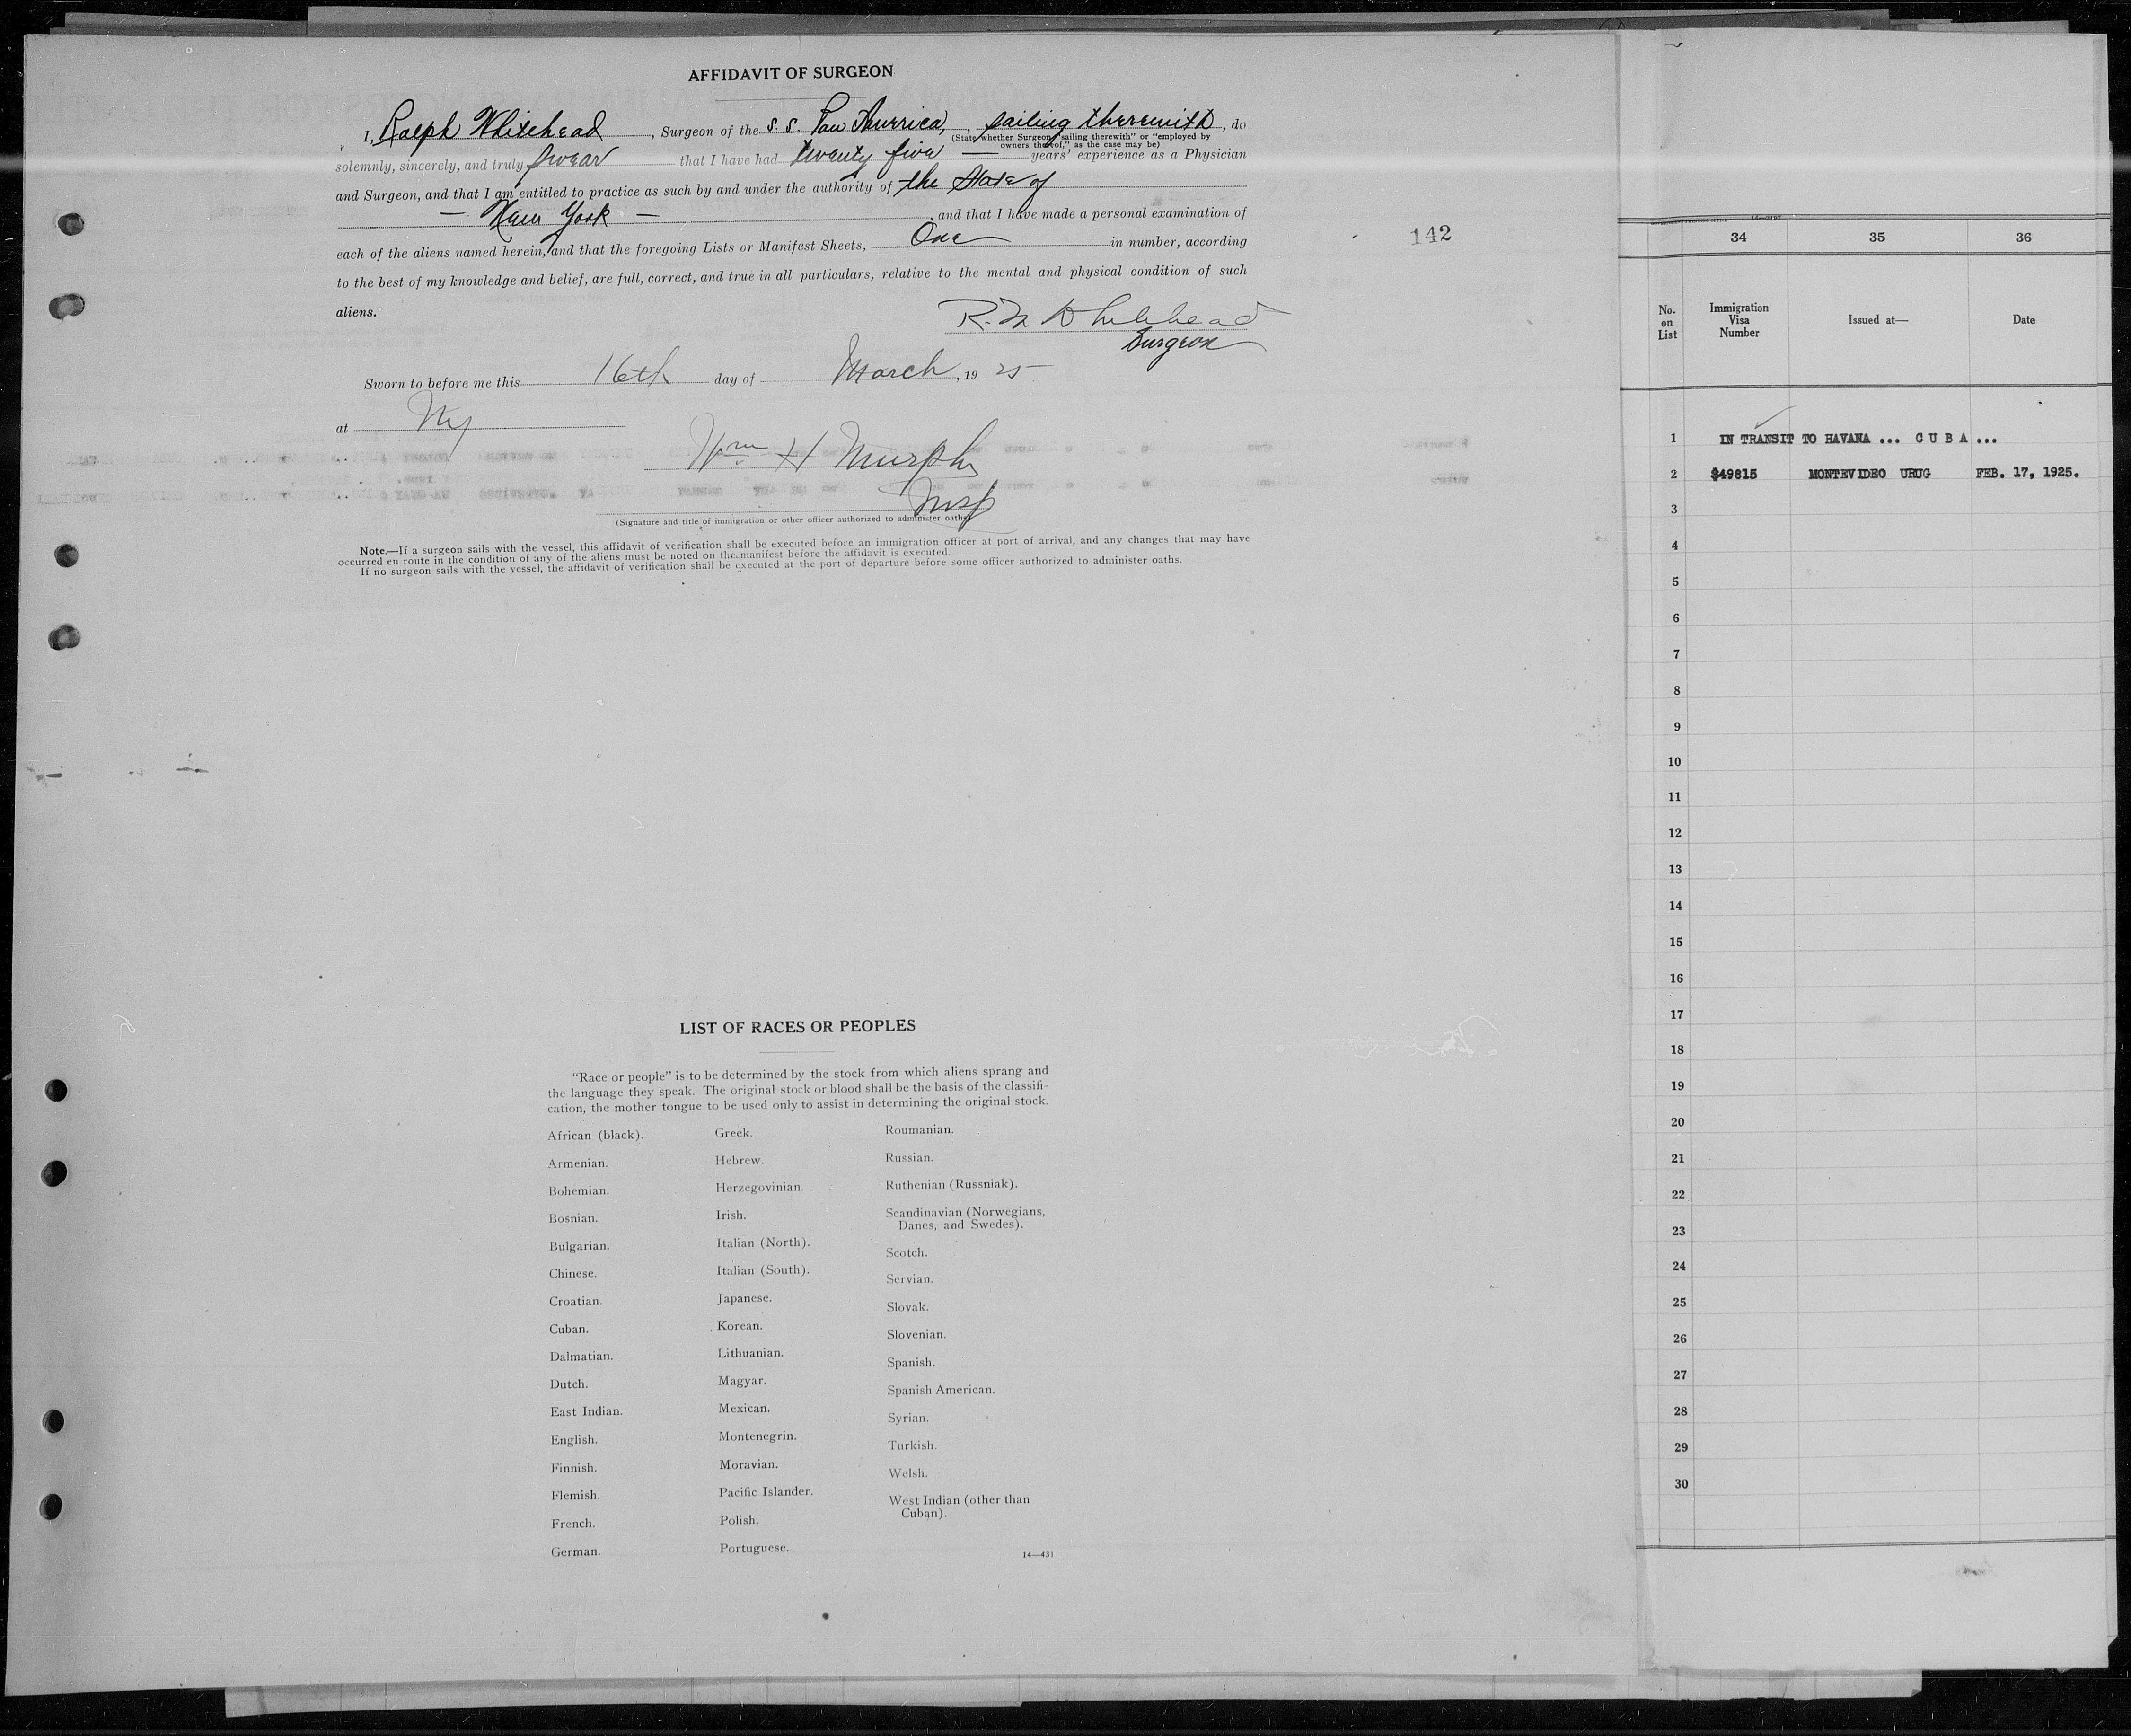 AFFIDAVIT OF SURGEON
I, Ralph Whitehead, Surgeon of the S. S. Pan America, sailing therewith, do
(State whether Surgeon "sailing therewith" or "employed by
owners thereof," as the case may be)
solemnly, sincerely, and truly swear that I have had twenty five — years' experience as a Physician
and Surgeon, and that I am entitled to practice as such by and under the authority of the State of
— New York — , and that I have made a personal examination of
each of the aliens named herein, and that the foregoing Lists or Manifest Sheets, One in number, according
to the best of my knowledge and belief, are full, correct, and true in all particulars, relative to the mental and physical condition of such
aliens.
Whitehead
Surgeon
Sworn to before me this 16th day of March, 19 25
at NY
Wm H Murphy
Insp
(Signature and title of immigration or other officer authorized to administer oaths)
Note.—If a surgeon sails with the vessel, this affidavit of verification shall be executed before an immigration officer at port of arrival, and any changes that may have
occurred en route in the condition of any of the aliens must be noted on the manifest before the affidavit is executed.
If no surgeon sails with the vessel, the affidavit of verification shall be executed at the port of departure before some officer authorized to administer oaths.
142
LIST OF RACES OR PEOPLES
"Race or people" is to be determined by the stock from which aliens sprang and
the language they speak. The original stock or blood shall be the basis of the classifi-
cation, the mother tongue to be used only to assist in determining the original stock.
African (black).
Armenian.
Bohemian.
Bosnian.
Bulgarian.
Chinese.
Croatian.
Cuban.
Dalmatian.
Dutch.
East Indian.
English.
Finnish.
Flemish.
French.
German.
Greek.
Hebrew.
Herzegovinian.
Irish.
Italian (North).
Italian (South).
Japanese.
Korean.
Lithuanian.
Magyar.
Mexican.
Montenegrin.
Moravian.
Pacific Islander.
Polish.
Portuguese.
Roumanian.
Russian.
Ruthenian (Russniak).
Scandinavian (Norwegians,
Danes, and Swedes).
Scotch.
Servian.
Slovak.
Slovenian.
Spanish.
Spanish American.
Syrian.
Turkish.
Welsh.
West Indian (other than
Cuban).
14—431
34 35 36
No. on List
Immigration Visa Number
Issued at—
Date
1 IN TRANSIT TO HAVANA ... C U B A ...
2 $49615 MONTEVIDEO URUG FEB. 17, 1925.
3
4
5
6
7
8
9
10
11
12
13
14
15
16
17
18
19
20
21
22
23
24
25
26
27
28
29
30